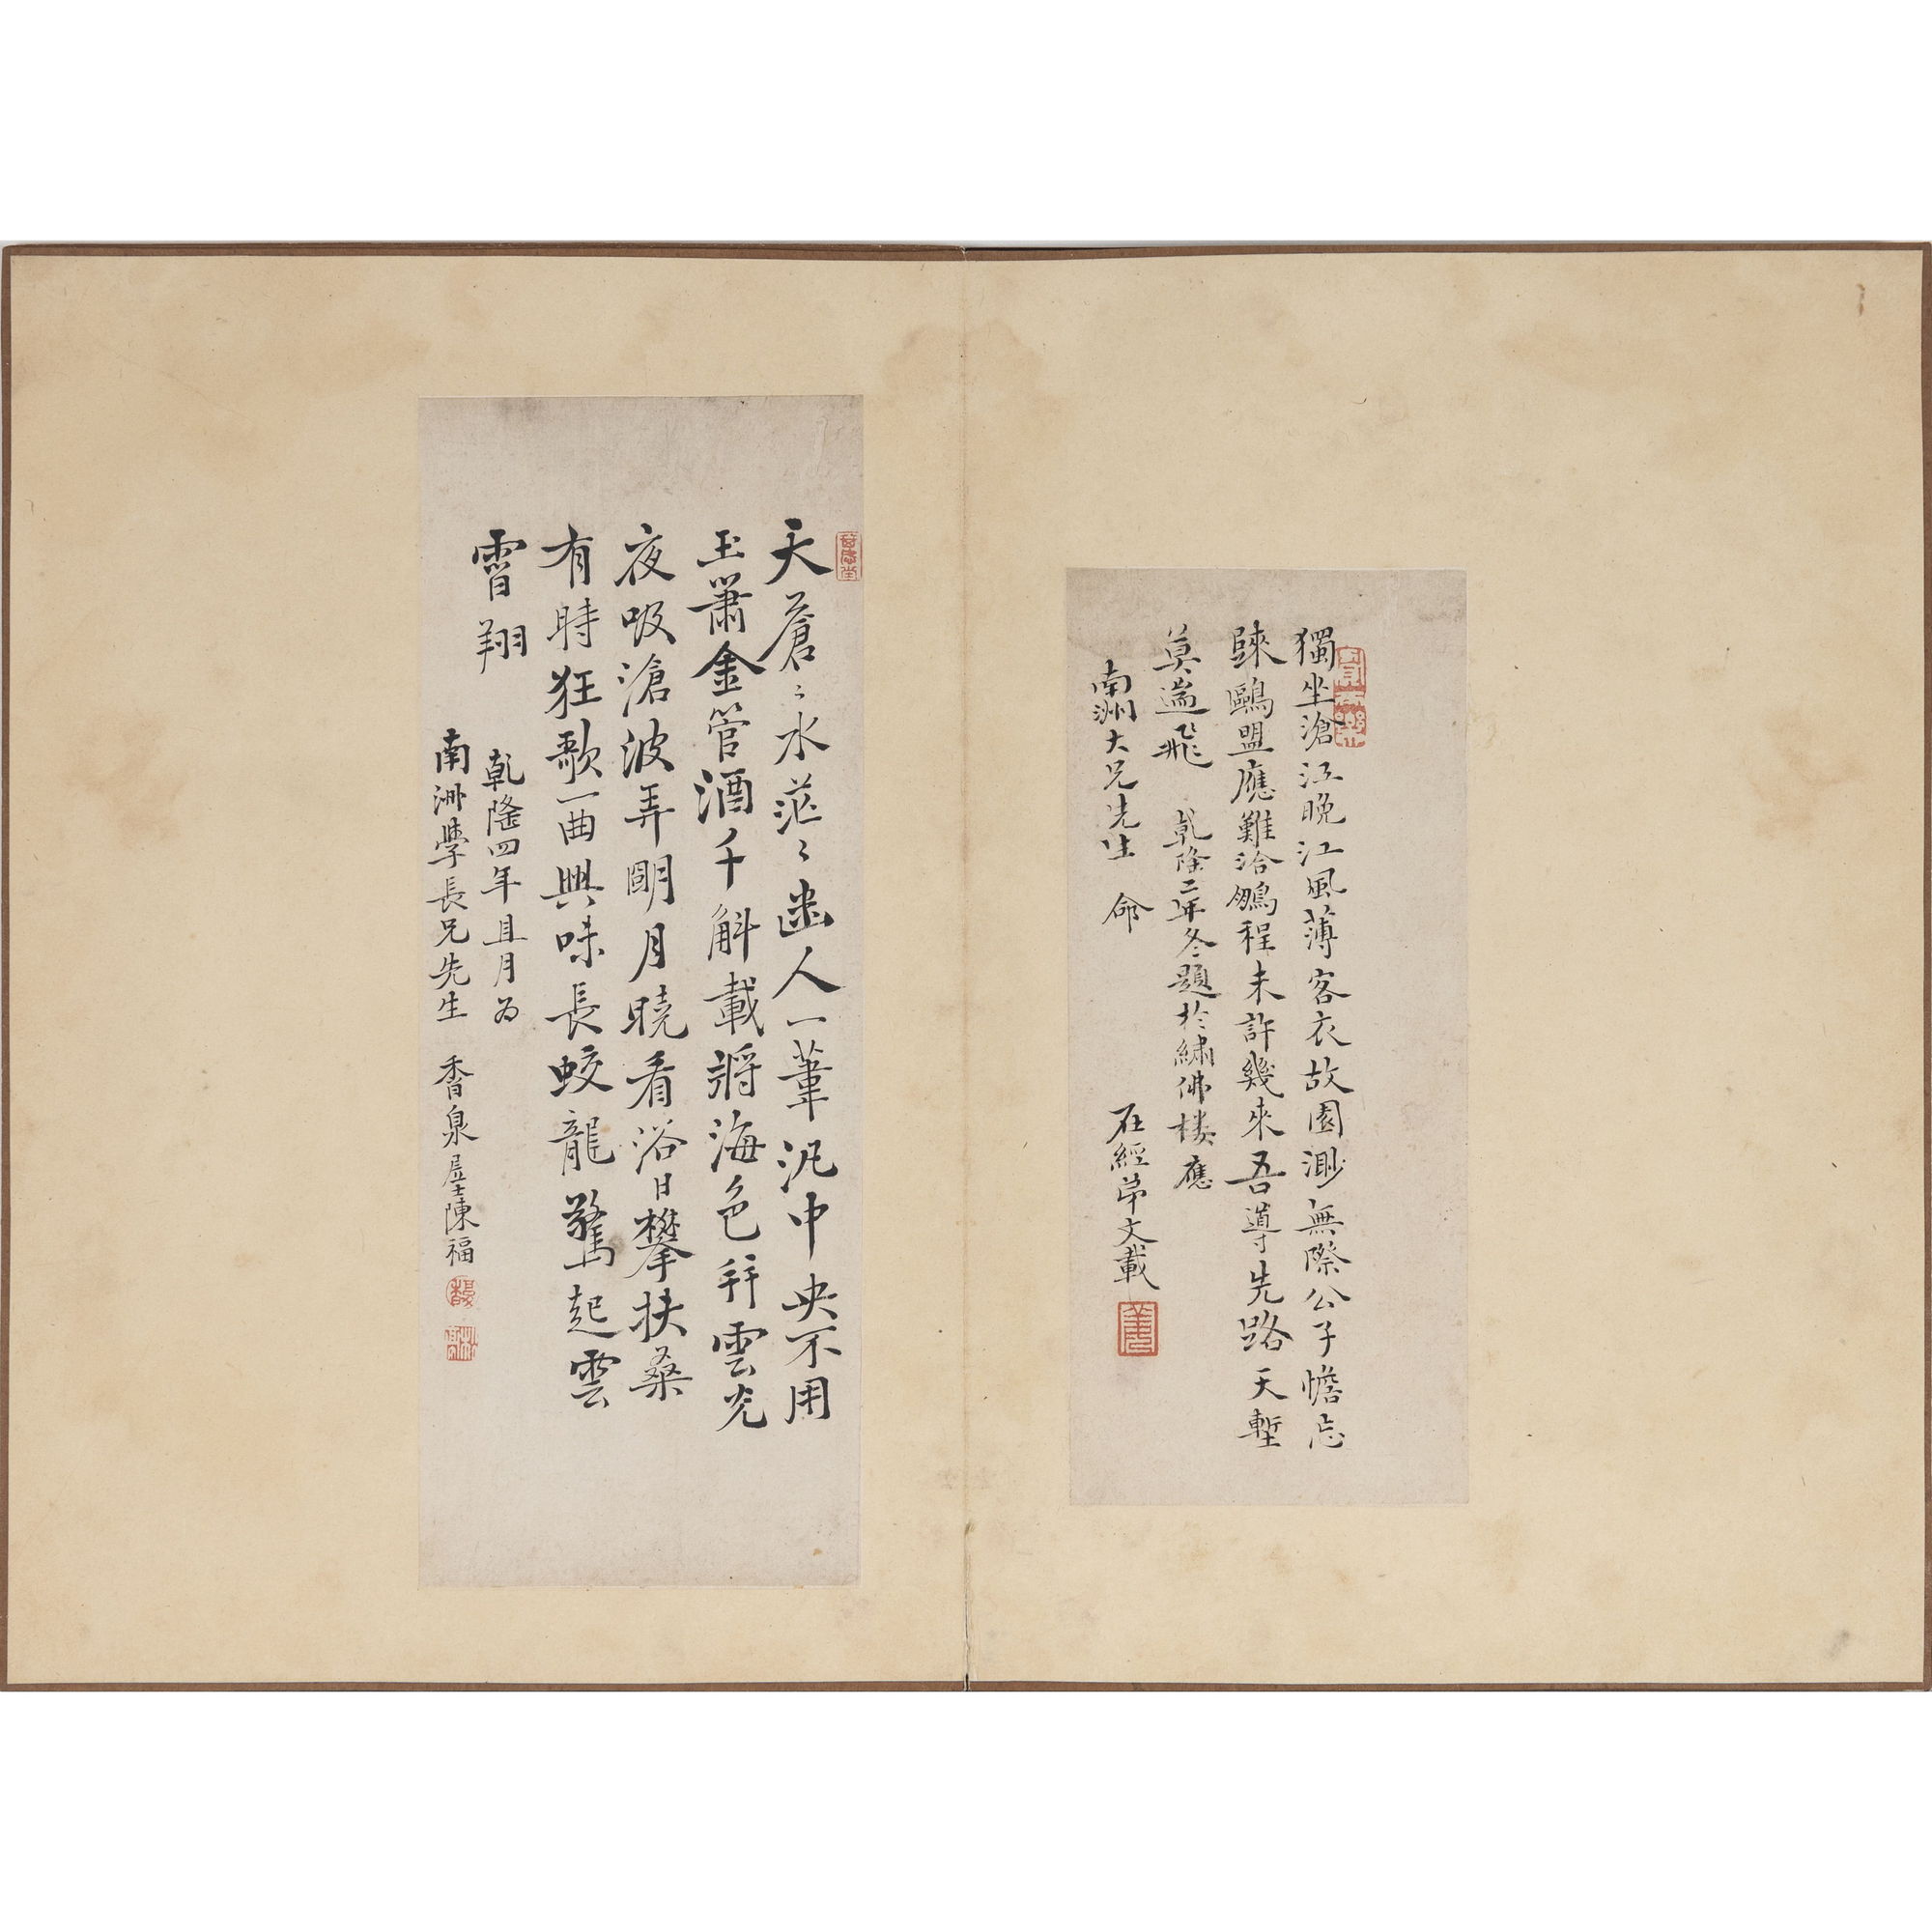 獨坐滄江晚江風薄客衣故園渺無際公子憺忘
歸鷗盟應難洽鵬程未許幾來吾導先路天塹
莫遄飛 乾隆二年冬題於繡佛樓應
南洲大兄先生 命
石經弟文載
天蒼〻水茫〻幽人一葦汎中央不用
玉簫金管酒千斛載將海色幷雲光
夜吸滄波弄明月曉看浴日攀扶桑
有時狂歌一曲興味長蛟龍驚起雲
霄翔
乾隆四年且月為
南洲學長兄先生 香泉居士陳福